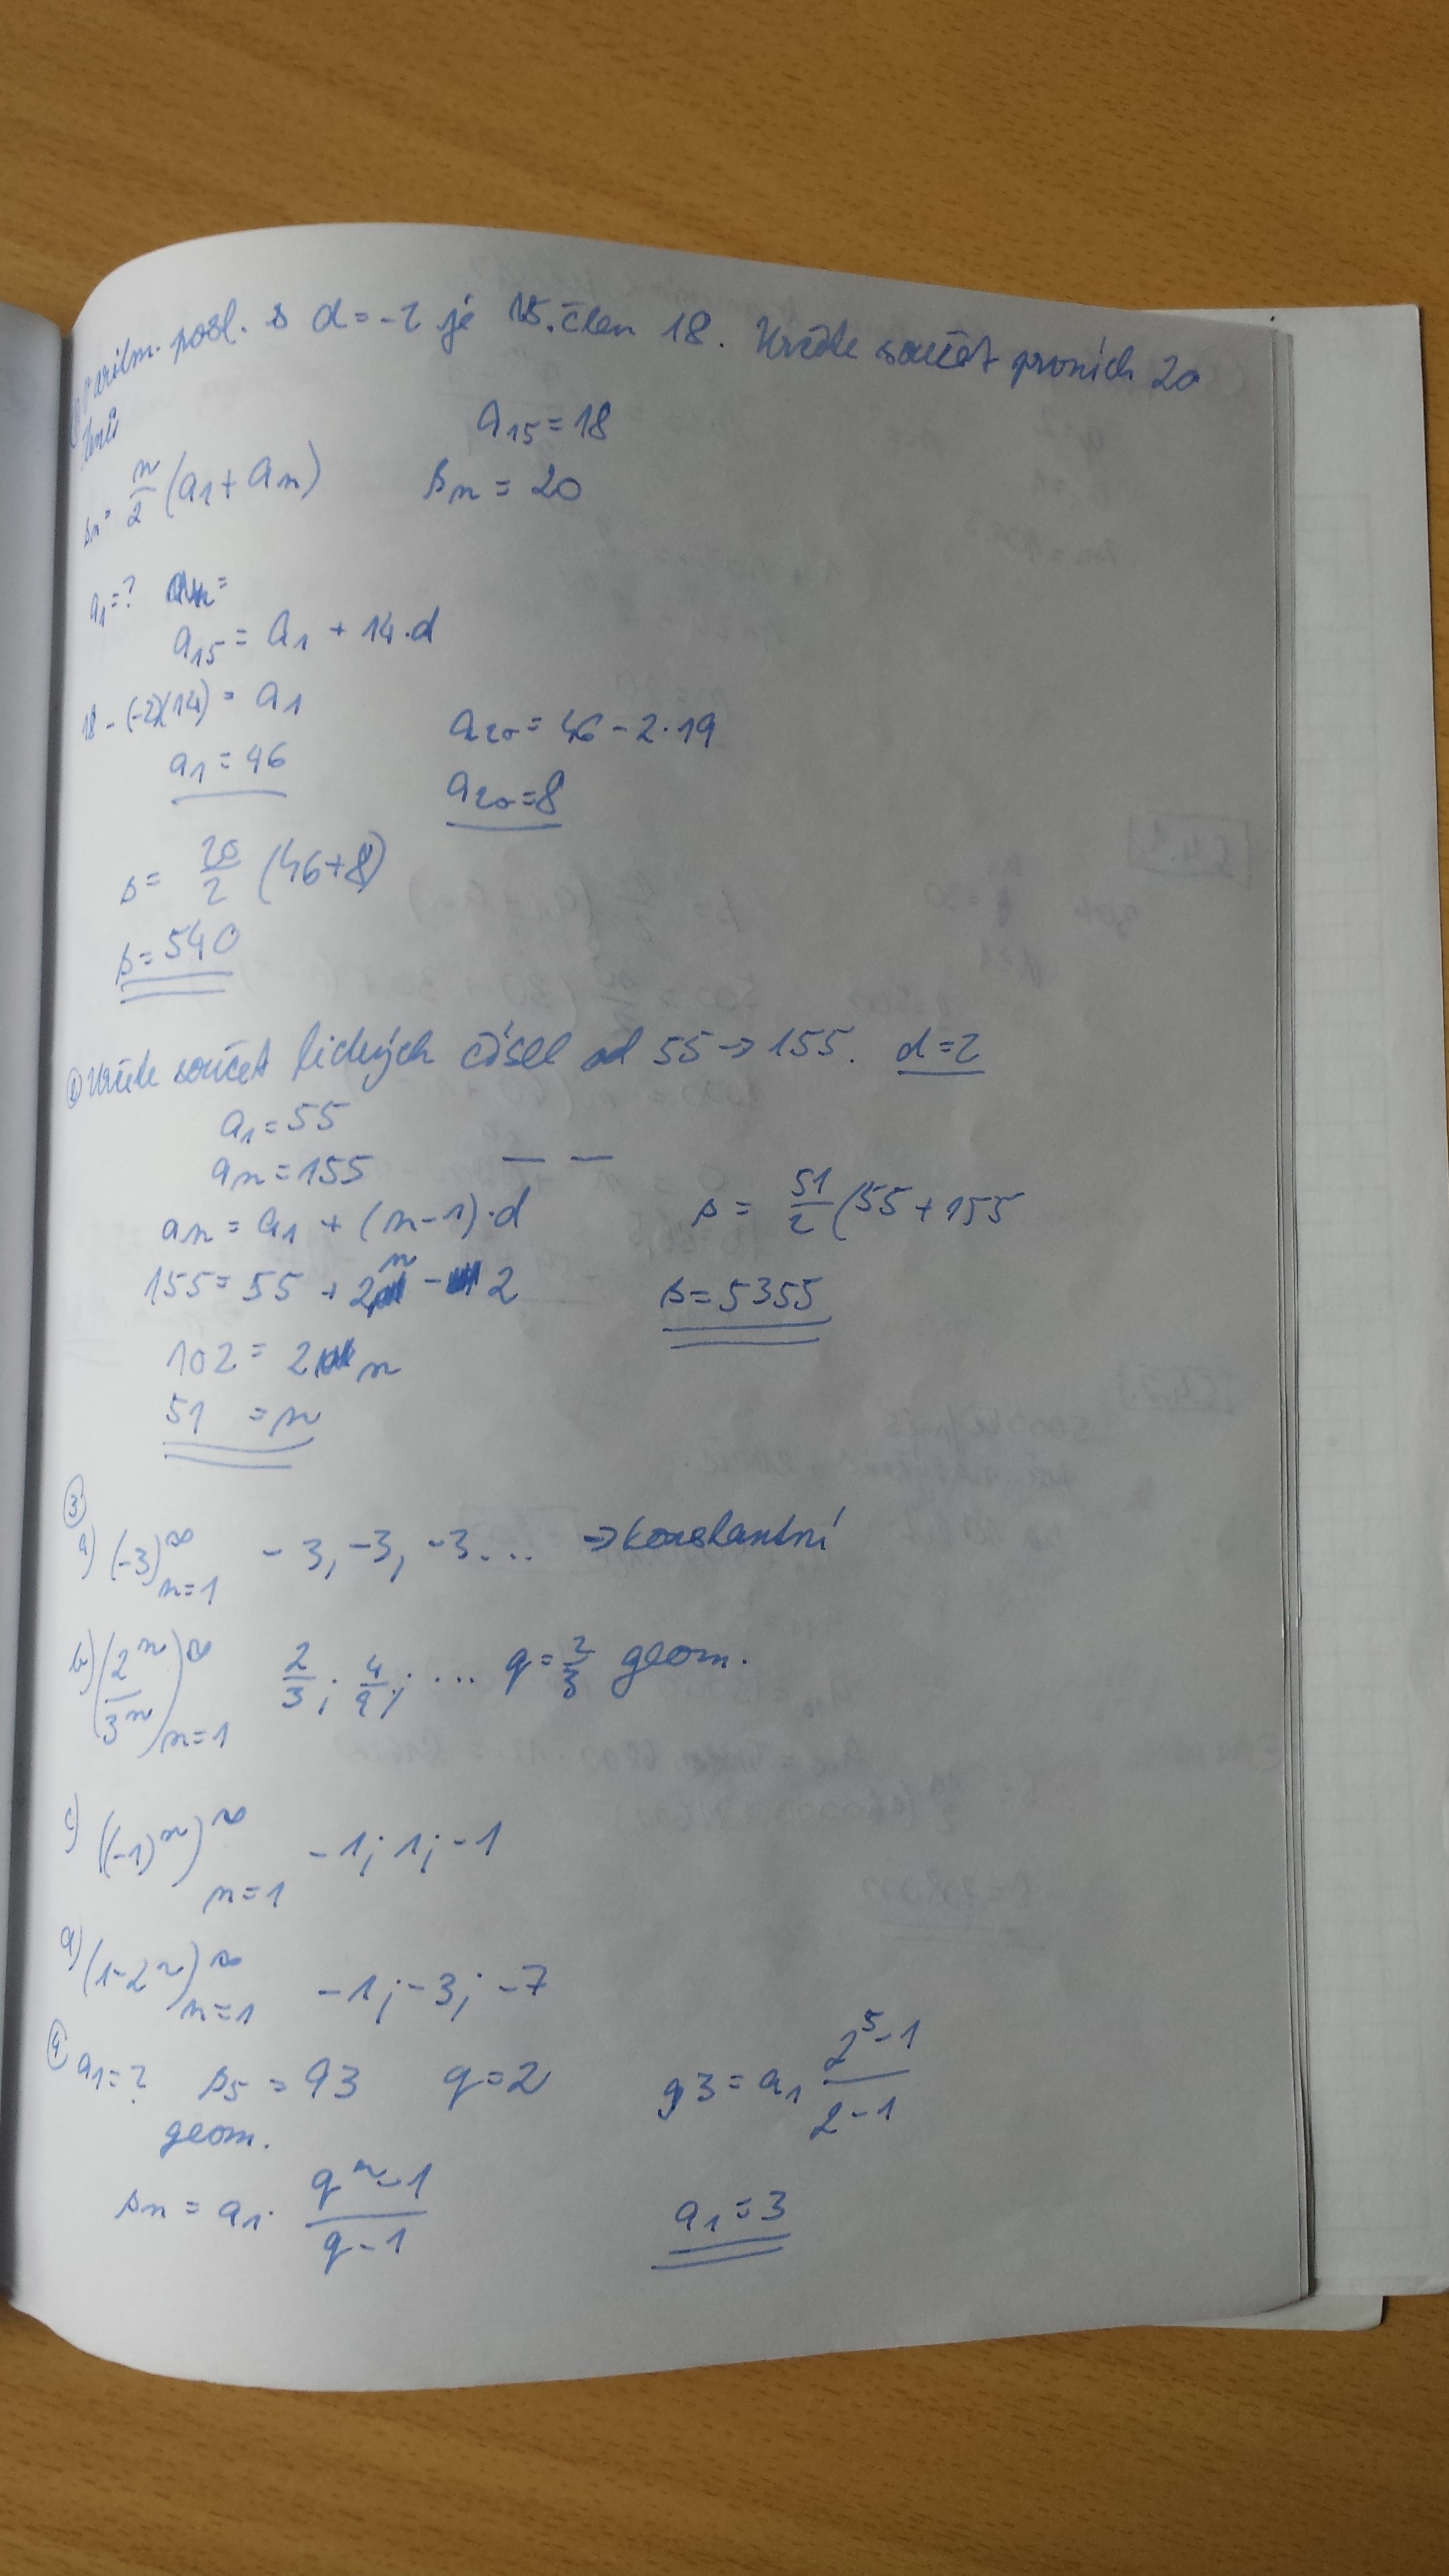 V aritm. posl. s d = -2 je 15. člen 18. Určete součet prvních 20
členů
a15 = 18
sn = n/2 (a1 + an)
sn = 20
a1 = ?
a15 = a1 + 14·d
18 - (-2)(14) = a1
a1 = 46
a20 = 46 - 2·19
a20 = 8
s = 20/2 (46+8)
s = 540
② Určete součet lichých čísel od 55 → 155. d=2
a1 = 55
an = 155
an = a1 + (n-1)·d
155 = 55 + 2n - 2
102 = 2n
51 = n
s = 51/2 (55 + 155
s = 5355
③
a) (-3)∞ n=1 -3, -3, -3... → konstantní
b) (2^n/3^n)∞ n=1 2/3; 4/9; ... q = 2/3 geom.
c) ((-1)^n)∞ n=1 -1; 1; -1
d) (1-2^n)∞ n=1 -1; -3; -7
④ a1 = ? s5 = 93 q = 2
geom.
sn = a1· (q^n - 1)/(q - 1)
93 = a1 (2^5 - 1)/(2 - 1)
a1 = 3